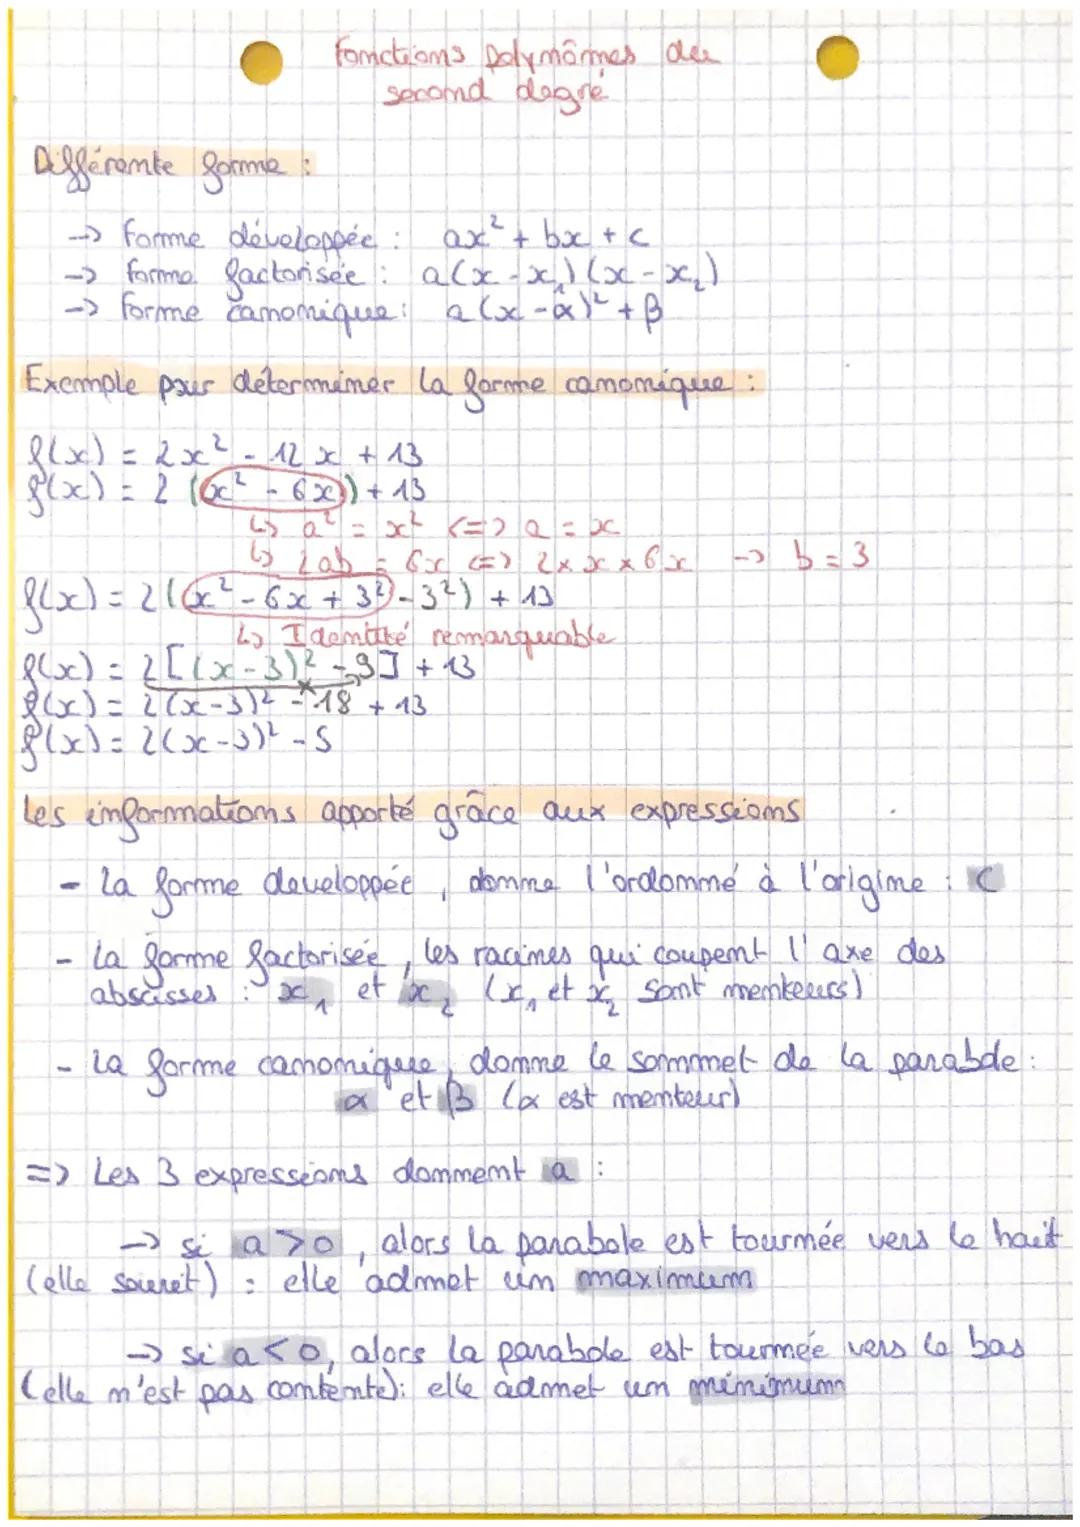 Fonctions polynômes du
second degré
Différente forme :
-> forme développée : ax² + bx + c
-> forme factorisée : a(x - x₁)(x - x₂)
-> forme canonique : a(x - α)² + β
Exemple pour déterminer la forme canonique :
f(x) = 2x² - 12x + 13
f(x) = 2 (x² - 6x) + 13
↳ a² = x² <=> a = x
↳ 2ab = 6x <=> 2 × x × 6x -> b = 3
f(x) = 2(x² - 6x + 3² - 3²) + 13
↳ Identité remarquable
f(x) = 2[(x-3)² - 9] + 13
f(x) = 2(x-3)² - 18 + 13
f(x) = 2(x-3)² - 5
Les informations apporté grâce aux expressions
- La forme developpée, donne l'ordonné à l'origine : C
- La forme factorisée, les racines qui coupent l'axe des
abscisses : x₁ et x₂ (x₁ et x₂ sont menteurs)
- La forme canonique, donne le sommet de la parabole :
α et β (α est menteur)
=> Les 3 expressions donnent a :
-> si a > 0, alors la parabole est tournée vers le haut
(elle sourit) : elle admet un maximum
-> si a < 0, alors la parabole est tournée vers le bas
(elle n'est pas contente) : elle admet un minimum